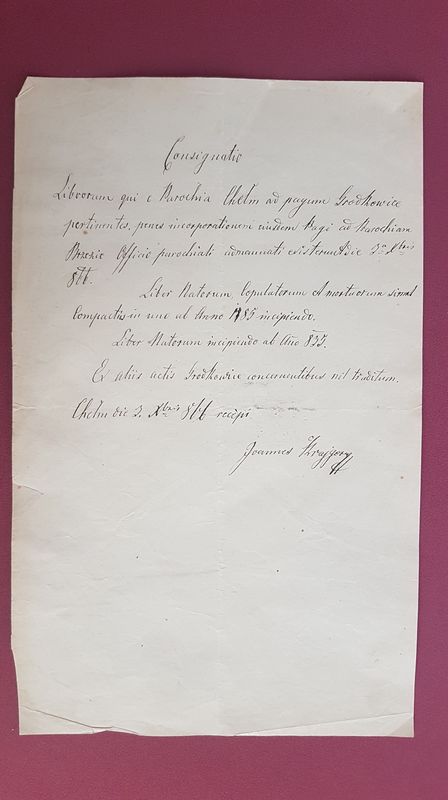 Consignatio
Librorum qui e Parochia Chełm ad pagum Grodkowice
pertinentes, penes incorporationem eiusdem Pagi ad Parochiam
Brzezie Officio parochiali adnumerati extiterunt die 3ª Xbris
866.
Liber Natorum, Copulatorum et mortuorum simul
Compactus in uno ab Anno 1785 incipiendo.
Liber Natorum incipiendo ab Ano 855.
Ex aliis actis Grodkowice concernentibus nil traditum.
Chełm die 3. Xbris 866 recepi
Joannes